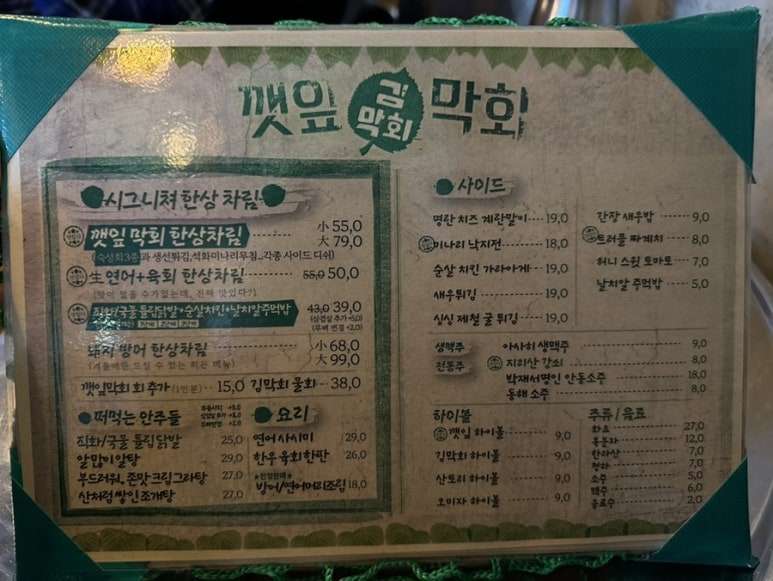 깻잎 김막회 막회
시그니쳐 한상 차림
깻잎 막회 한상차림 小 55,0
大 79,0
(숙성회3종과 생선튀김,석화미나리무침..각종 사이드 디쉬)
生연어+육회 한상차림 55,0 50,0
(맛이 없을 수가없는데, 진짜 맛있다?)
직화/국물 튤립닭발+순살치킨+날치알주먹밥 43,0 39,0
(삼겹살 추가+5,0)
(무뼈 변경 +2,0)
방어 한상차림 小 68,0
大 99,0
(겨울에만 드실 수 있는 히든 메뉴)
깻잎막회 회 추가 (1인분) 15,0 김막회 물회 38,0
떠먹는 안주들
직화/국물 튤립닭발 25,0
알많이알탕 29,0
부드러워, 존맛 크림그라탕 27,0
산처럼쌓인조개탕 27,0
요리
연어 사시미 29,0
한우 육회한판 26,0
방어/연어머리조림 18,0
사이드
명란 치즈 계란말이 19,0
미나리 낙지전 18,0
순살 치킨 가라아게 19,0
새우튀김 19,0
싱싱 제철 굴 튀김 19,0
간장 새우밥 9,0
트러플 짜계치 8,0
허니 스윗 토마토 7,0
날치알 주먹밥 5,0
생맥주 아사히 생맥주 9,0
전통주 지리산 강쇠 8,0
박재서명인 안동소주 18,0
동해 소주 8,0
하이볼
깻잎 하이볼 9,0
김막회 하이볼 9,0
산토리 하이볼 9,0
오미자 하이볼 9,0
주류/음료
화요 27,0
복분자 12,0
한라산 7,0
청하 7,0
소주 5,0
맥주 6,0
음료수 2,0